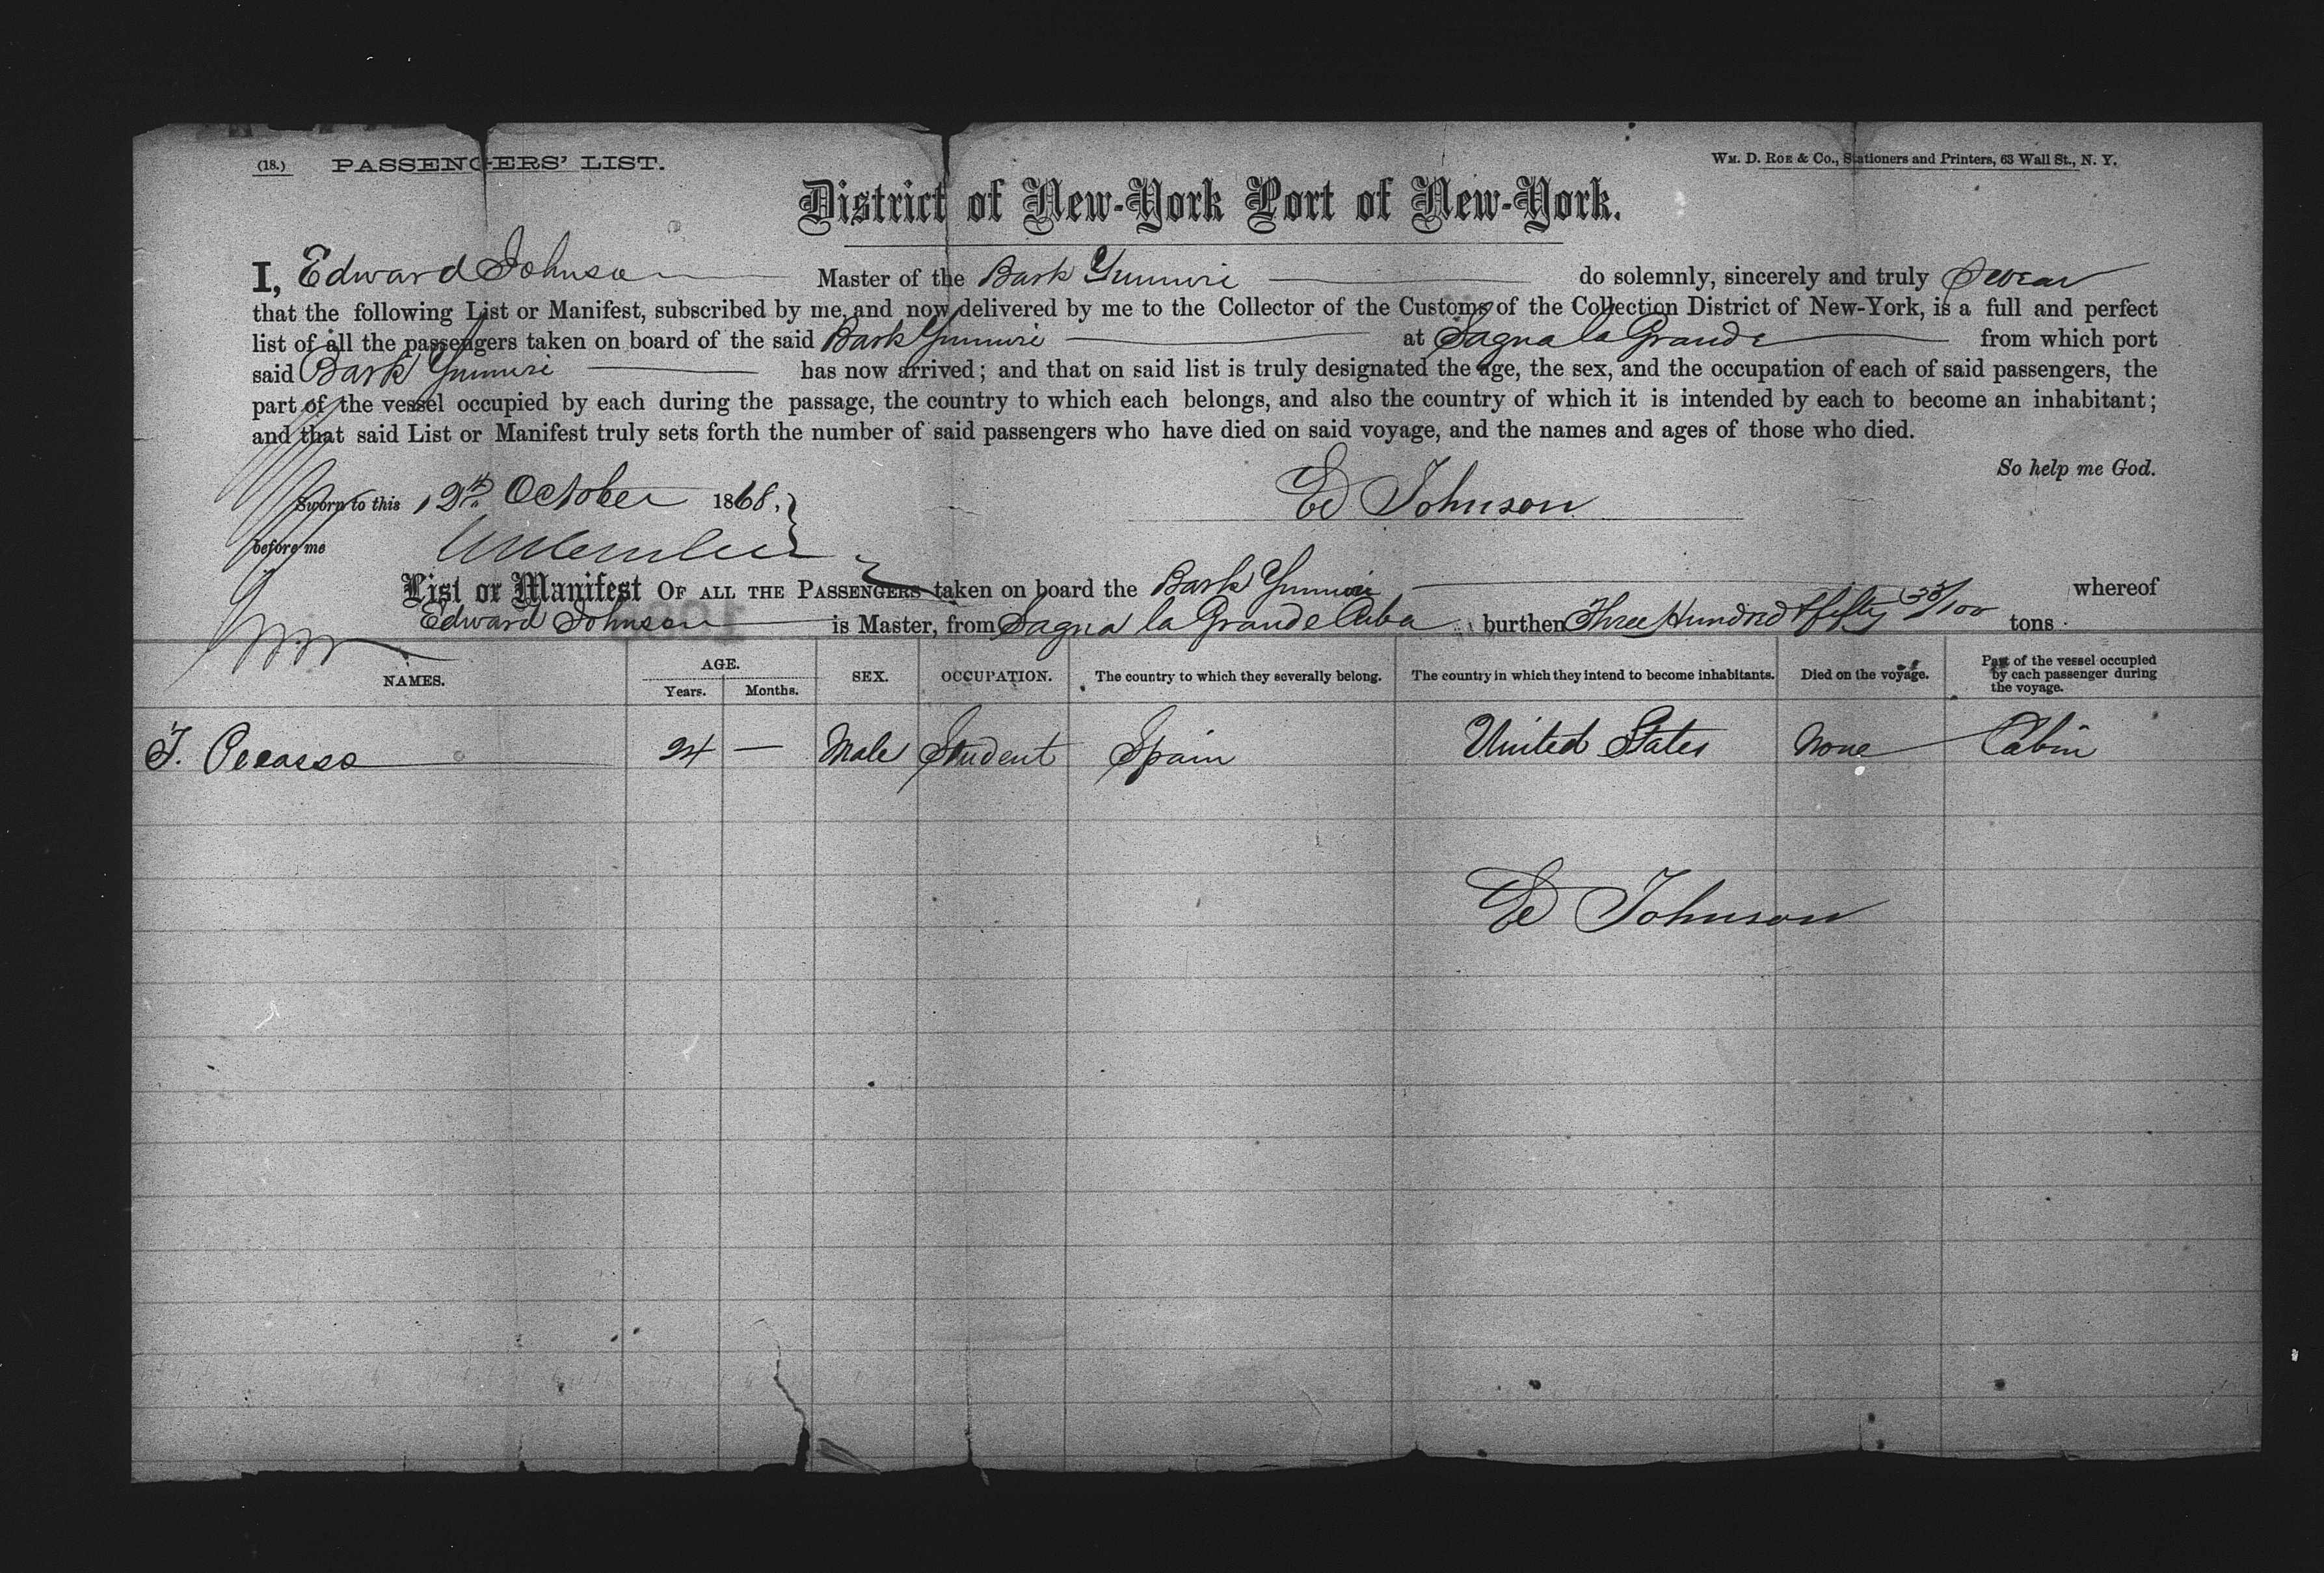 (18.) PASSENGERS' LIST.
WM. D. ROE & CO., Stationers and Printers, 63 Wall St., N. Y.
District of New-York Port of New-York.
I, Edward Johnson Master of the Bark Yumuri do solemnly, sincerely and truly Swear
that the following List or Manifest, subscribed by me, and now delivered by me to the Collector of the Customs of the Collection District of New-York, is a full and perfect
list of all the passengers taken on board of the said Bark Yumuri at Sagua la Grande from which port
said Bark Yumuri has now arrived; and that on said list is truly designated the age, the sex, and the occupation of each of said passengers, the
part of the vessel occupied by each during the passage, the country to which each belongs, and also the country of which it is intended by each to become an inhabitant;
and that said List or Manifest truly sets forth the number of said passengers who have died on said voyage, and the names and ages of those who died.
So help me God.
Sworn to this 12th October 1868.
Ed Johnson
before me
List or Manifest OF ALL THE PASSENGERS taken on board the Bark Yumuri whereof
Edward Johnson is Master, from Sagua la Grande Cuba burthen Three Hundred & fifty 33/100 tons
NAMES. AGE. Years. Months. SEX. OCCUPATION. The country to which they severally belong. The country in which they intend to become inhabitants. Died on the voyage. Part of the vessel occupied by each passenger during the voyage.
24 — Male Student Spain United States None Cabin
Ed Johnson